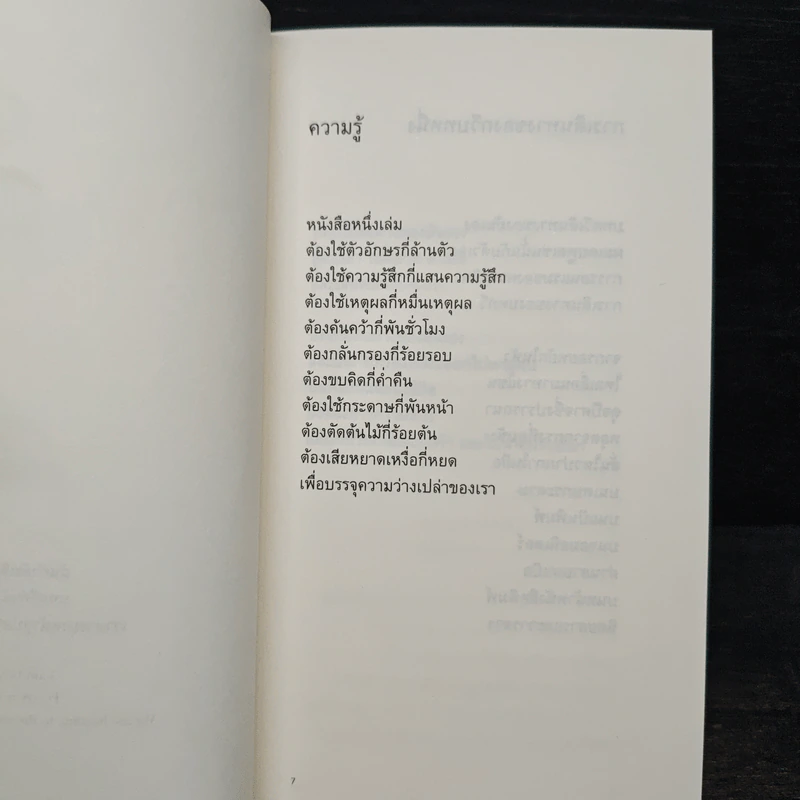 ความรู้
หนังสือหนึ่งเล่ม
ต้องใช้ตัวอักษรกี่ล้านตัว
ต้องใช้ความรู้สึกกี่แสนความรู้สึก
ต้องใช้เหตุผลกี่หมื่นเหตุผล
ต้องค้นคว้ากี่พันชั่วโมง
ต้องกลั่นกรองกี่ร้อยรอบ
ต้องขบคิดกี่ค่ำคืน
ต้องใช้กระดาษกี่พันหน้า
ต้องตัดต้นไม้กี่ร้อยต้น
ต้องเสียหยาดเหงื่อกี่หยด
เพื่อบรรจุความว่างเปล่าของเรา
7